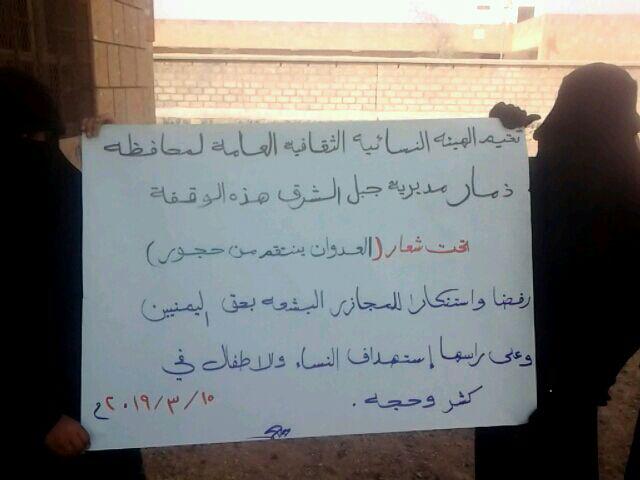 تقيم الهيئه النسائية الثقافيه العامة لمحافظه
ذمار مديريه جبل الشرق هذه الوقفة
تحت شعار (العدوان ينتقم من حجور)
رفضا واستنكارا للمجازر البشعه بحق اليمنيين
وعلى راسها إستهداف النساء والاطفال في
كشر وحجه .
١٥/٣/٢٠١٩م